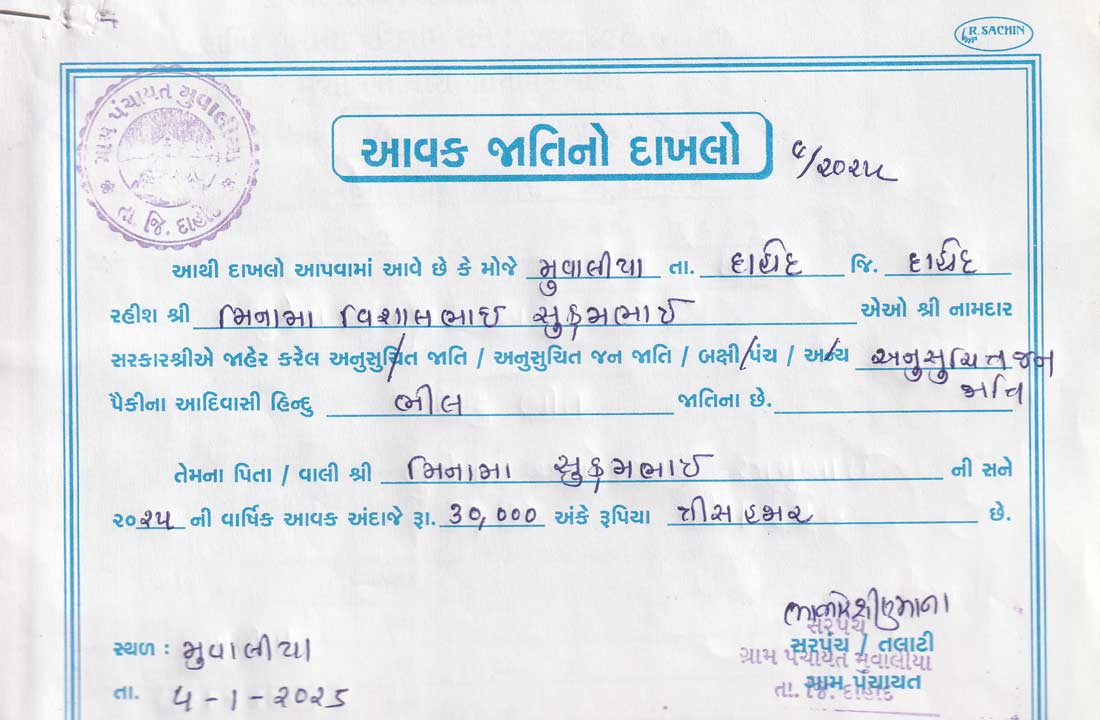 R. SACHIN
ગ્રામ પંચાયત મુવાલીયા
તા. જિ. દાહોદ
આવક જાતિનો દાખલો
૯/૨૦૨૫
આથી દાખલો આપવામાં આવે છે કે મોજે મુવાલીયા તા. દાહોદ જિ. દાહોદ
રહીશ શ્રી મિનામા વિશાલભાઇ સુક્રમભાઇ એઓ શ્રી નામદાર
સરકારશ્રીએ જાહેર કરેલ અનુસુચિત જાતિ / અનુસુચિત જન જાતિ / બક્ષી પંચ / અન્ય અનુસુચિત જન
જાતિ
પૈકીના આદિવાસી હિન્દુ ભીલ જાતિના છે.
તેમના પિતા / વાલી શ્રી મિનામા સુક્રમભાઇ ની સને
૨૦૨૫ ની વાર્ષિક આવક અંદાજે રૂા. 30,000 અંકે રૂપિયા ત્રીસ હજાર છે.
સરપંચ
સ્થળ : મુવાલીયા
સરપંચ / તલાટી
ગ્રામ પંચાયત મુવાલીયા
ગ્રામ પંચાયત
તા. જિ. દાહોદ
તા. ૫-1-૨૦૨૬